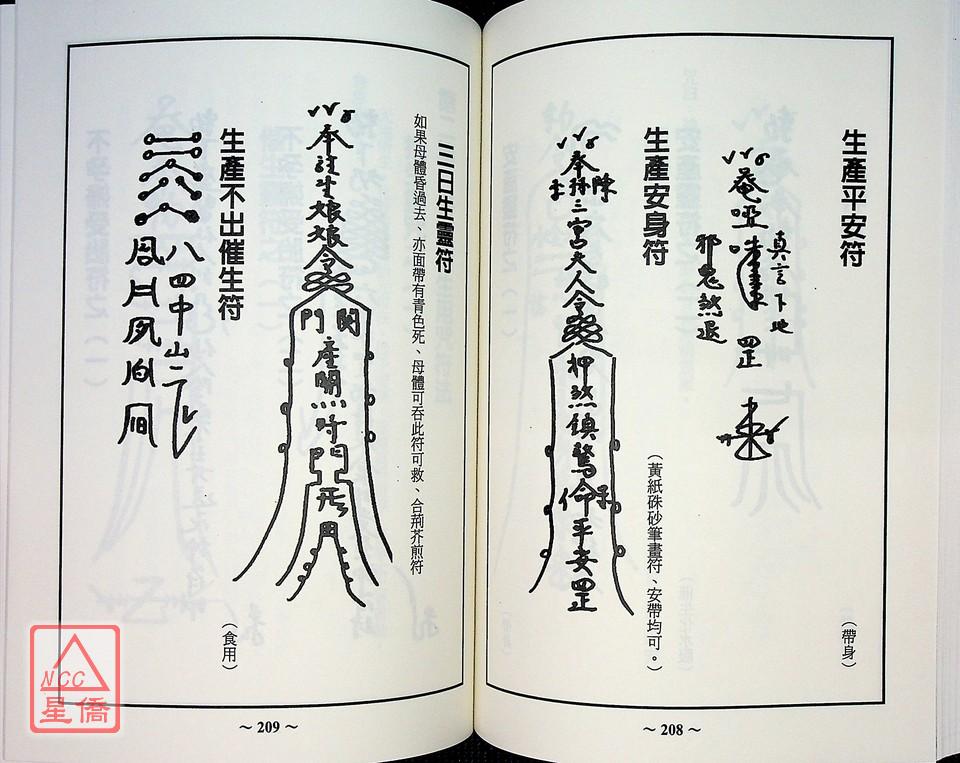 生產平安符
真言下地
邪鬼煞退
罡
(帶身)
生產安身符
奉
陳
三宮夫人令
押煞鎮驚
平安罡
(黃紙硃砂筆畫符、安帶均可。)
~ 208 ~
三日生靈符
如果母體昏過去、亦面帶有青色死、母體可吞此符可救、合荊芥煎符
奉註生娘娘令
開門
產
時
生產不出催生符
(食用)
八四中山
~ 209 ~
NCC
星僑